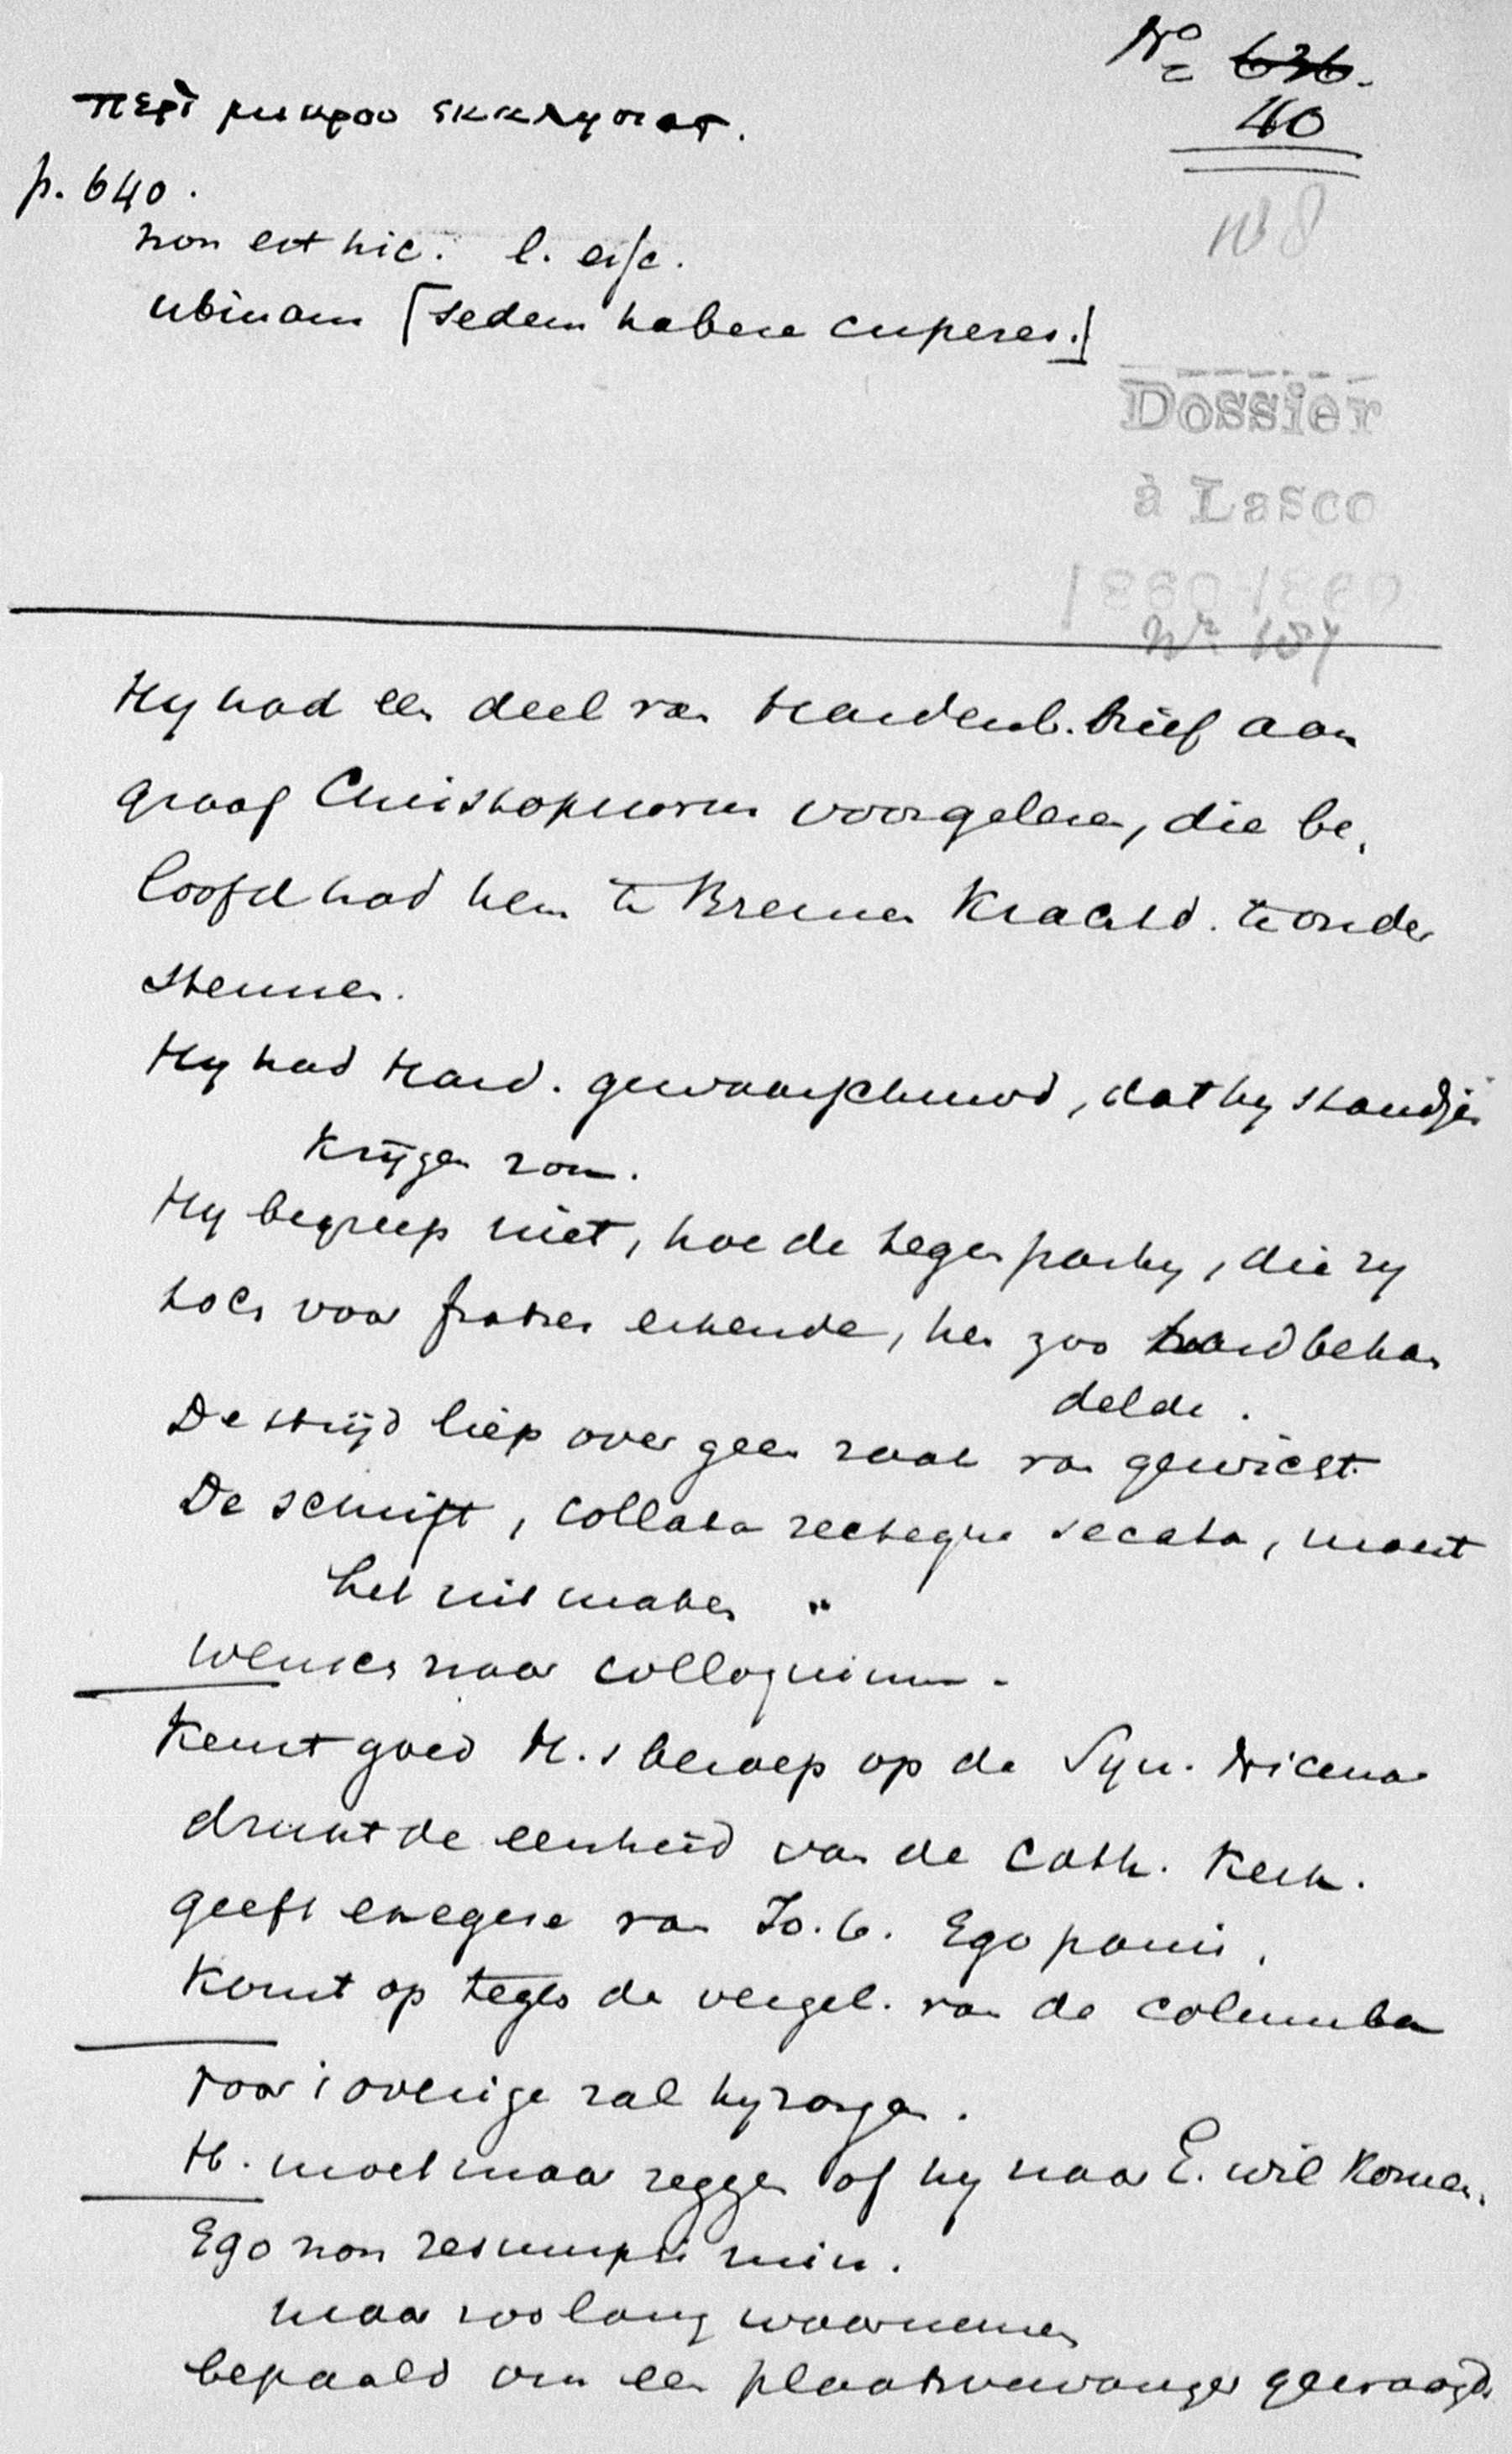 Nº 636.
40
περὶ μικροῦ ἐκκλησίας.
p. 640.
non est hic. l. eisc.
ubinam [sedem habere cuperes.]
Dossier
à Lasco
1860-1860
Nr 107
Hy had een deel van Hardenb. brief aan
graaf Christophorus voorgelezen, die be-
loofd had hem te Bremen krachtd. te onder
steunen.
Hy had Hard. gewaarschuwd, dat hy standjes
krijgen zou.
Hy begreep niet, hoe de tegenparty, die zy
toch voor fratres erkende, hen zoo hard behan
delde.
De strijd liep over geen zaak van gewicht.
De schrift, collata recteque secata, moest
het uitmaken "
Wensch naar colloquium.
Keurt goed H.s beroep op de Syn. Nicena
drukt de eenheid van de Cath. Kerk.
geeft exegese van Jo. 6. Ego panis.
Komt op tegen de vergel. van de columba
Voor 't overige zal hy zorgen.
H. moet maar zeggen of hy naar E. wil komen.
Ego non resumpsi min.
maar zoo lang waarnemen
bepaald om een plaatsvervanger gevraagd.